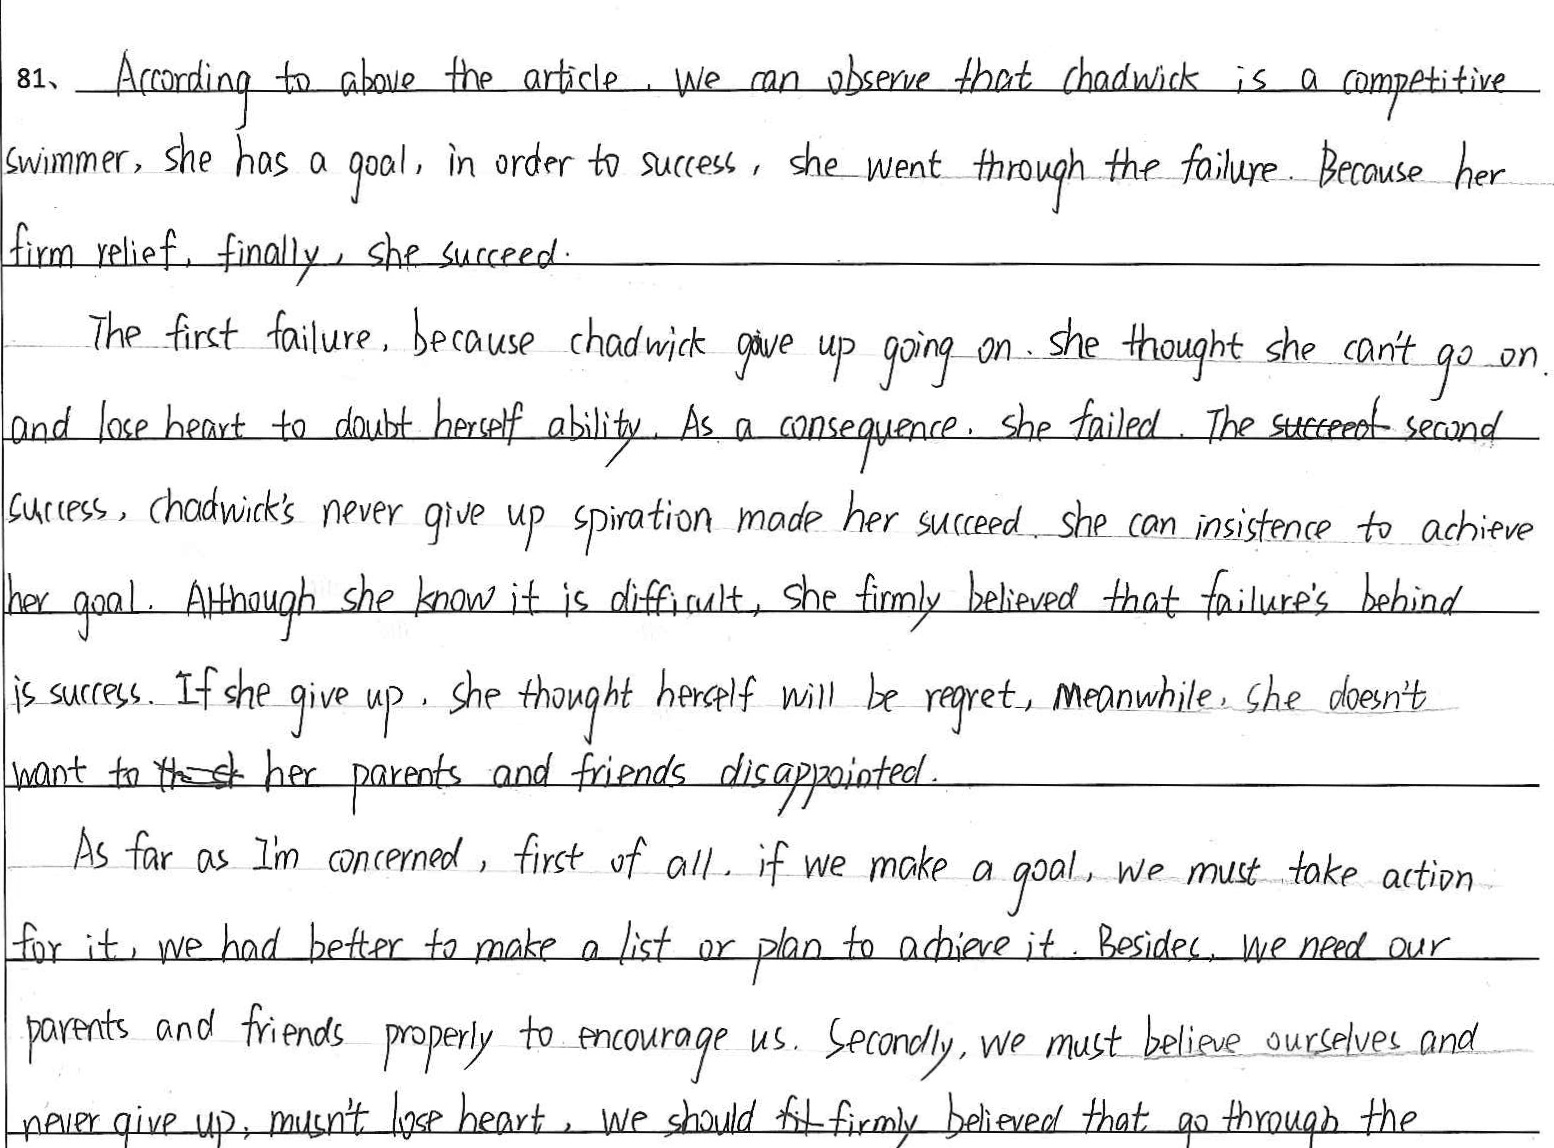 81、 According to above the article, We can observe that chadwick is a competitive
swimmer, she has a goal, in order to success, she went through the failure. Because her
firm relief, finally, she succeed.
The first failure, because chadwick give up going on. she thought she can't go on.
and lose heart to doubt herself ability. As a consequence, she failed. The succeed second
success, chadwick's never give up spiration made her succeed. she can insistence to achieve
her goal. Although she know it is difficult, she firmly believed that failure's behind
is success. If she give up, she thought herself will be regret, meanwhile, she doesn't
want to her parents and friends disappointed.
As far as I'm concerned, first of all, if we make a goal, we must take action
for it, we had better to make a list or plan to achieve it. Besides, we need our
parents and friends properly to encourage us. Secondly, we must believe ourselves and
never give up, musn't lose heart, we should fit firmly believed that go through the